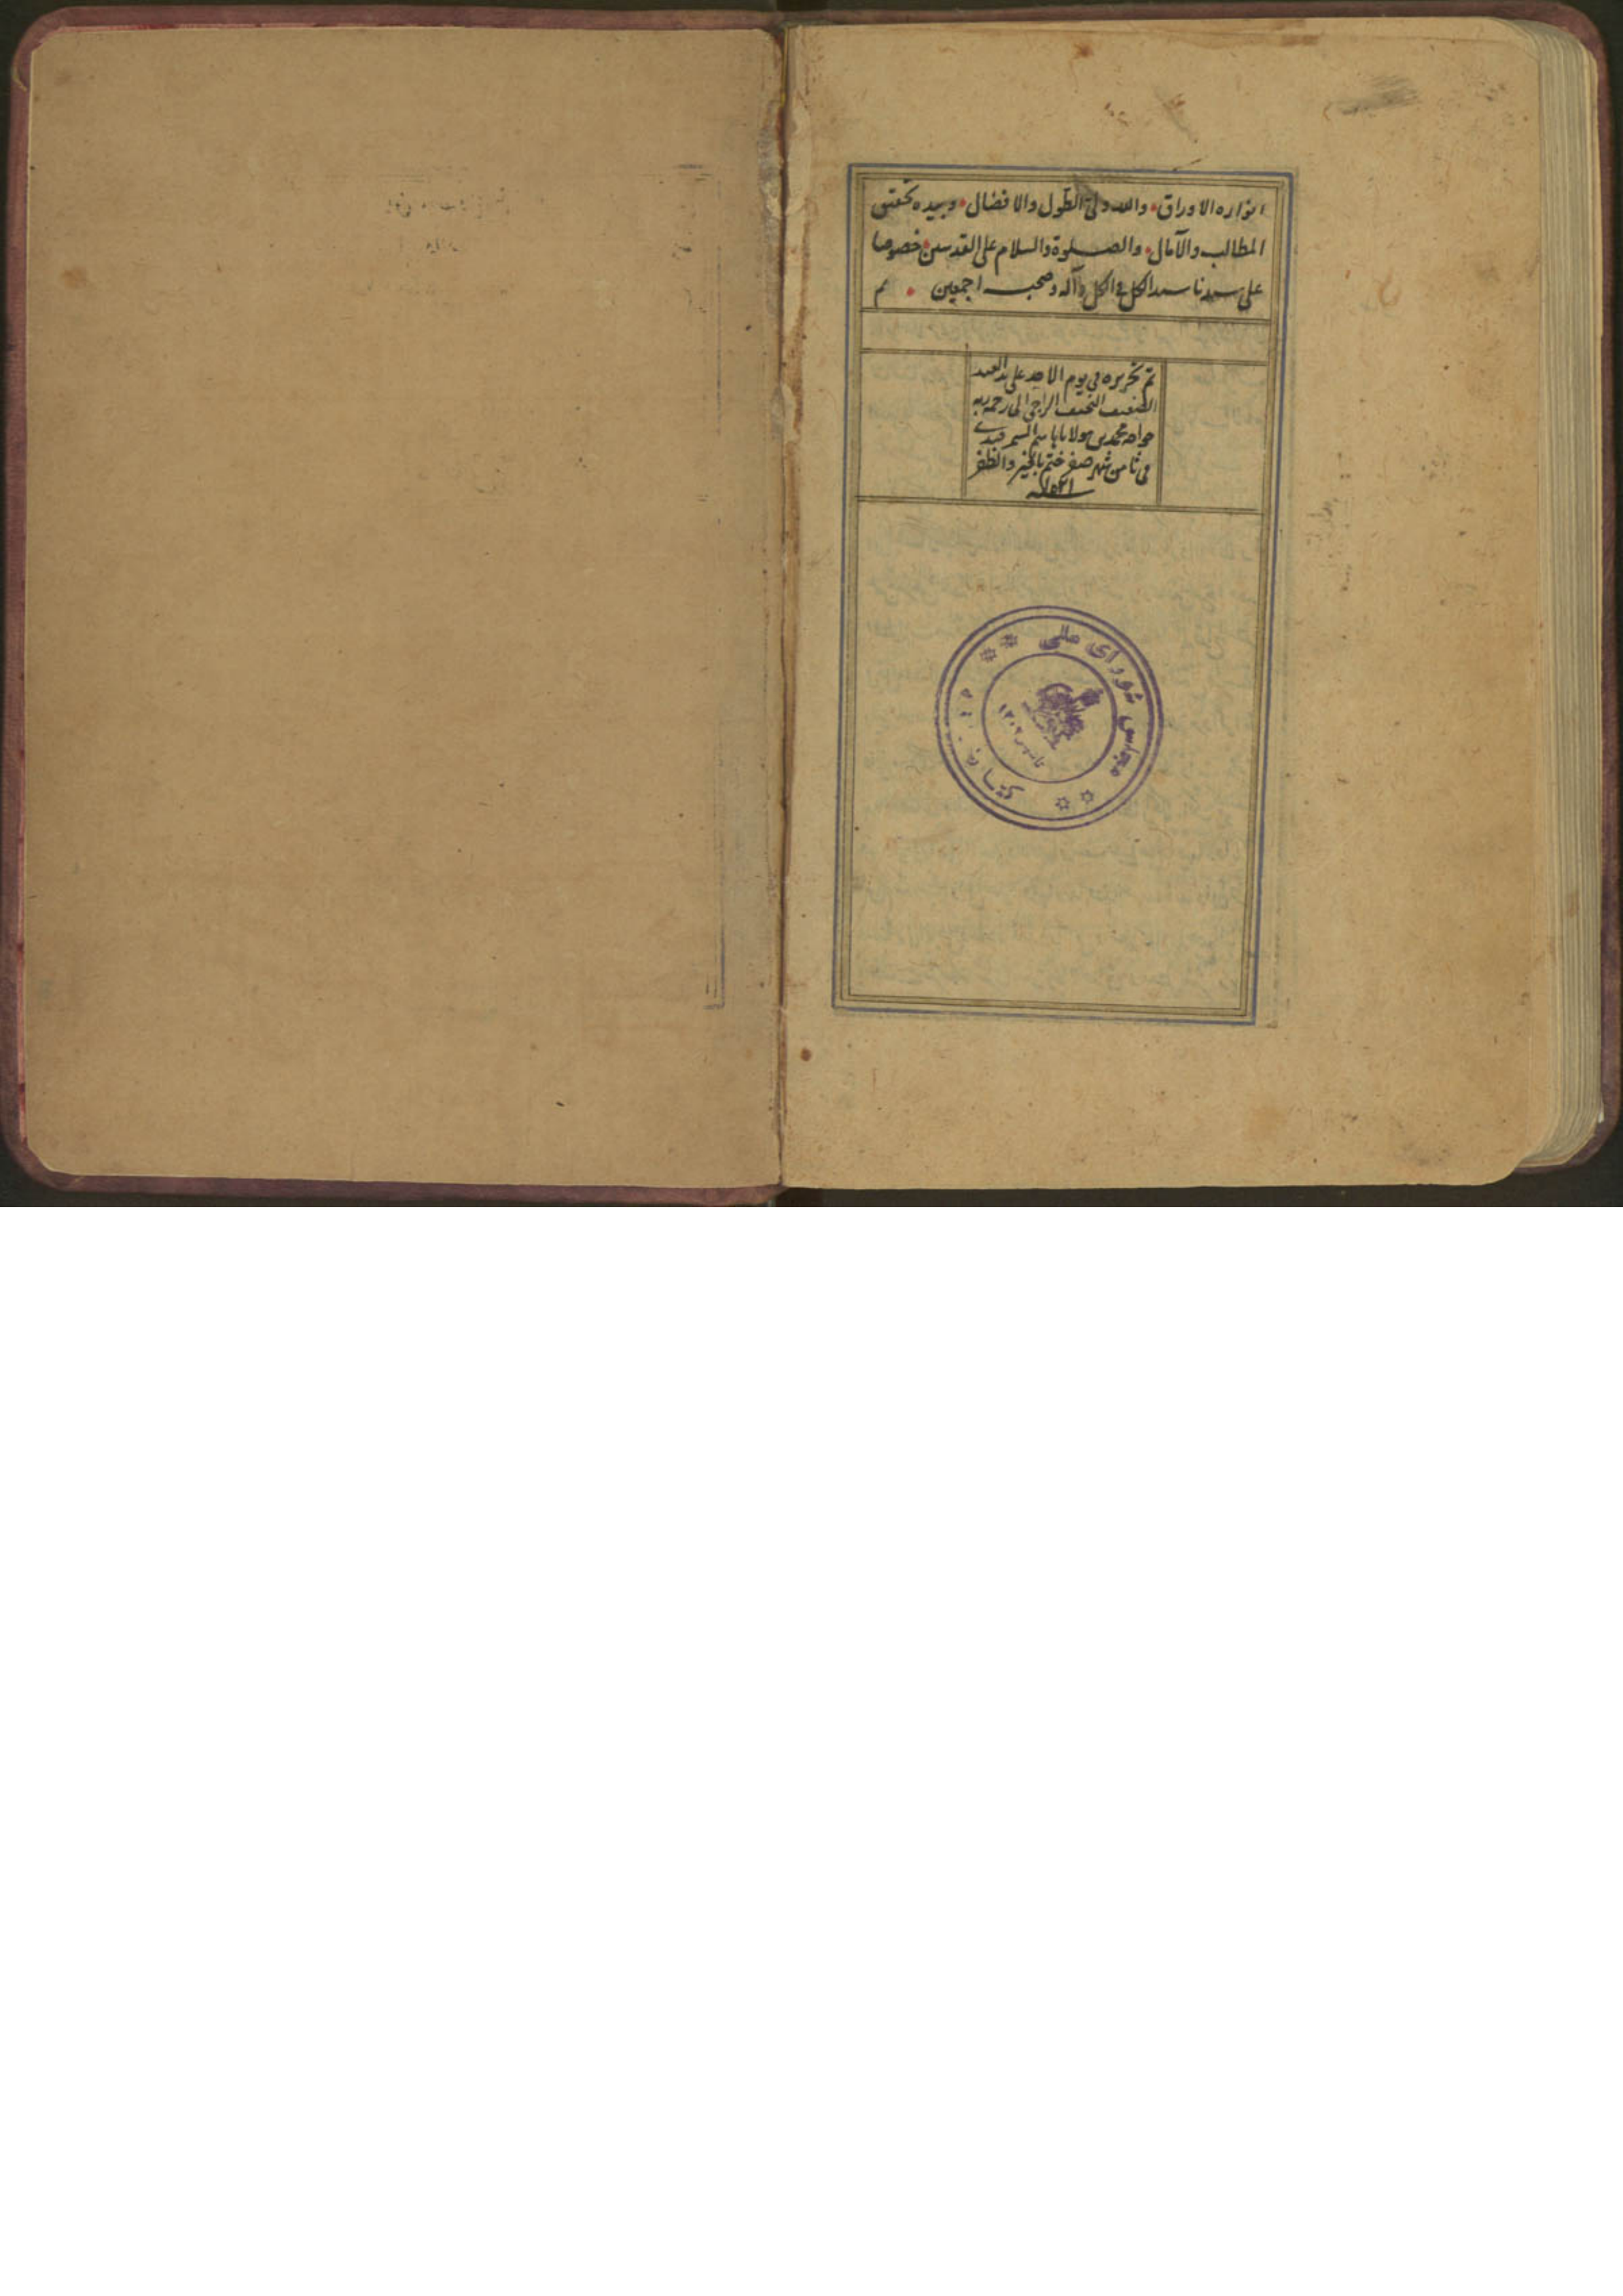 انواره الاوراق والله ولی الطول والافضال وبیده تحقیق
المطالب والآمال والصلوة والسلام علی القدسین خصوصا
علی سیدنا سید الکل فی الکل وآله وصحبه اجمعین تم
تم تحریره فی یوم الاحد علی ید العبد
الضعیف النحیف الراجی الی رحمة ربه
خواجه محمد بن مولانا السمرقندی
فی ثامن شهر صفر ختم بالخیر والظفر
کتابخانه
مجلس شورای ملی
تاسیس ۱۳۰۲